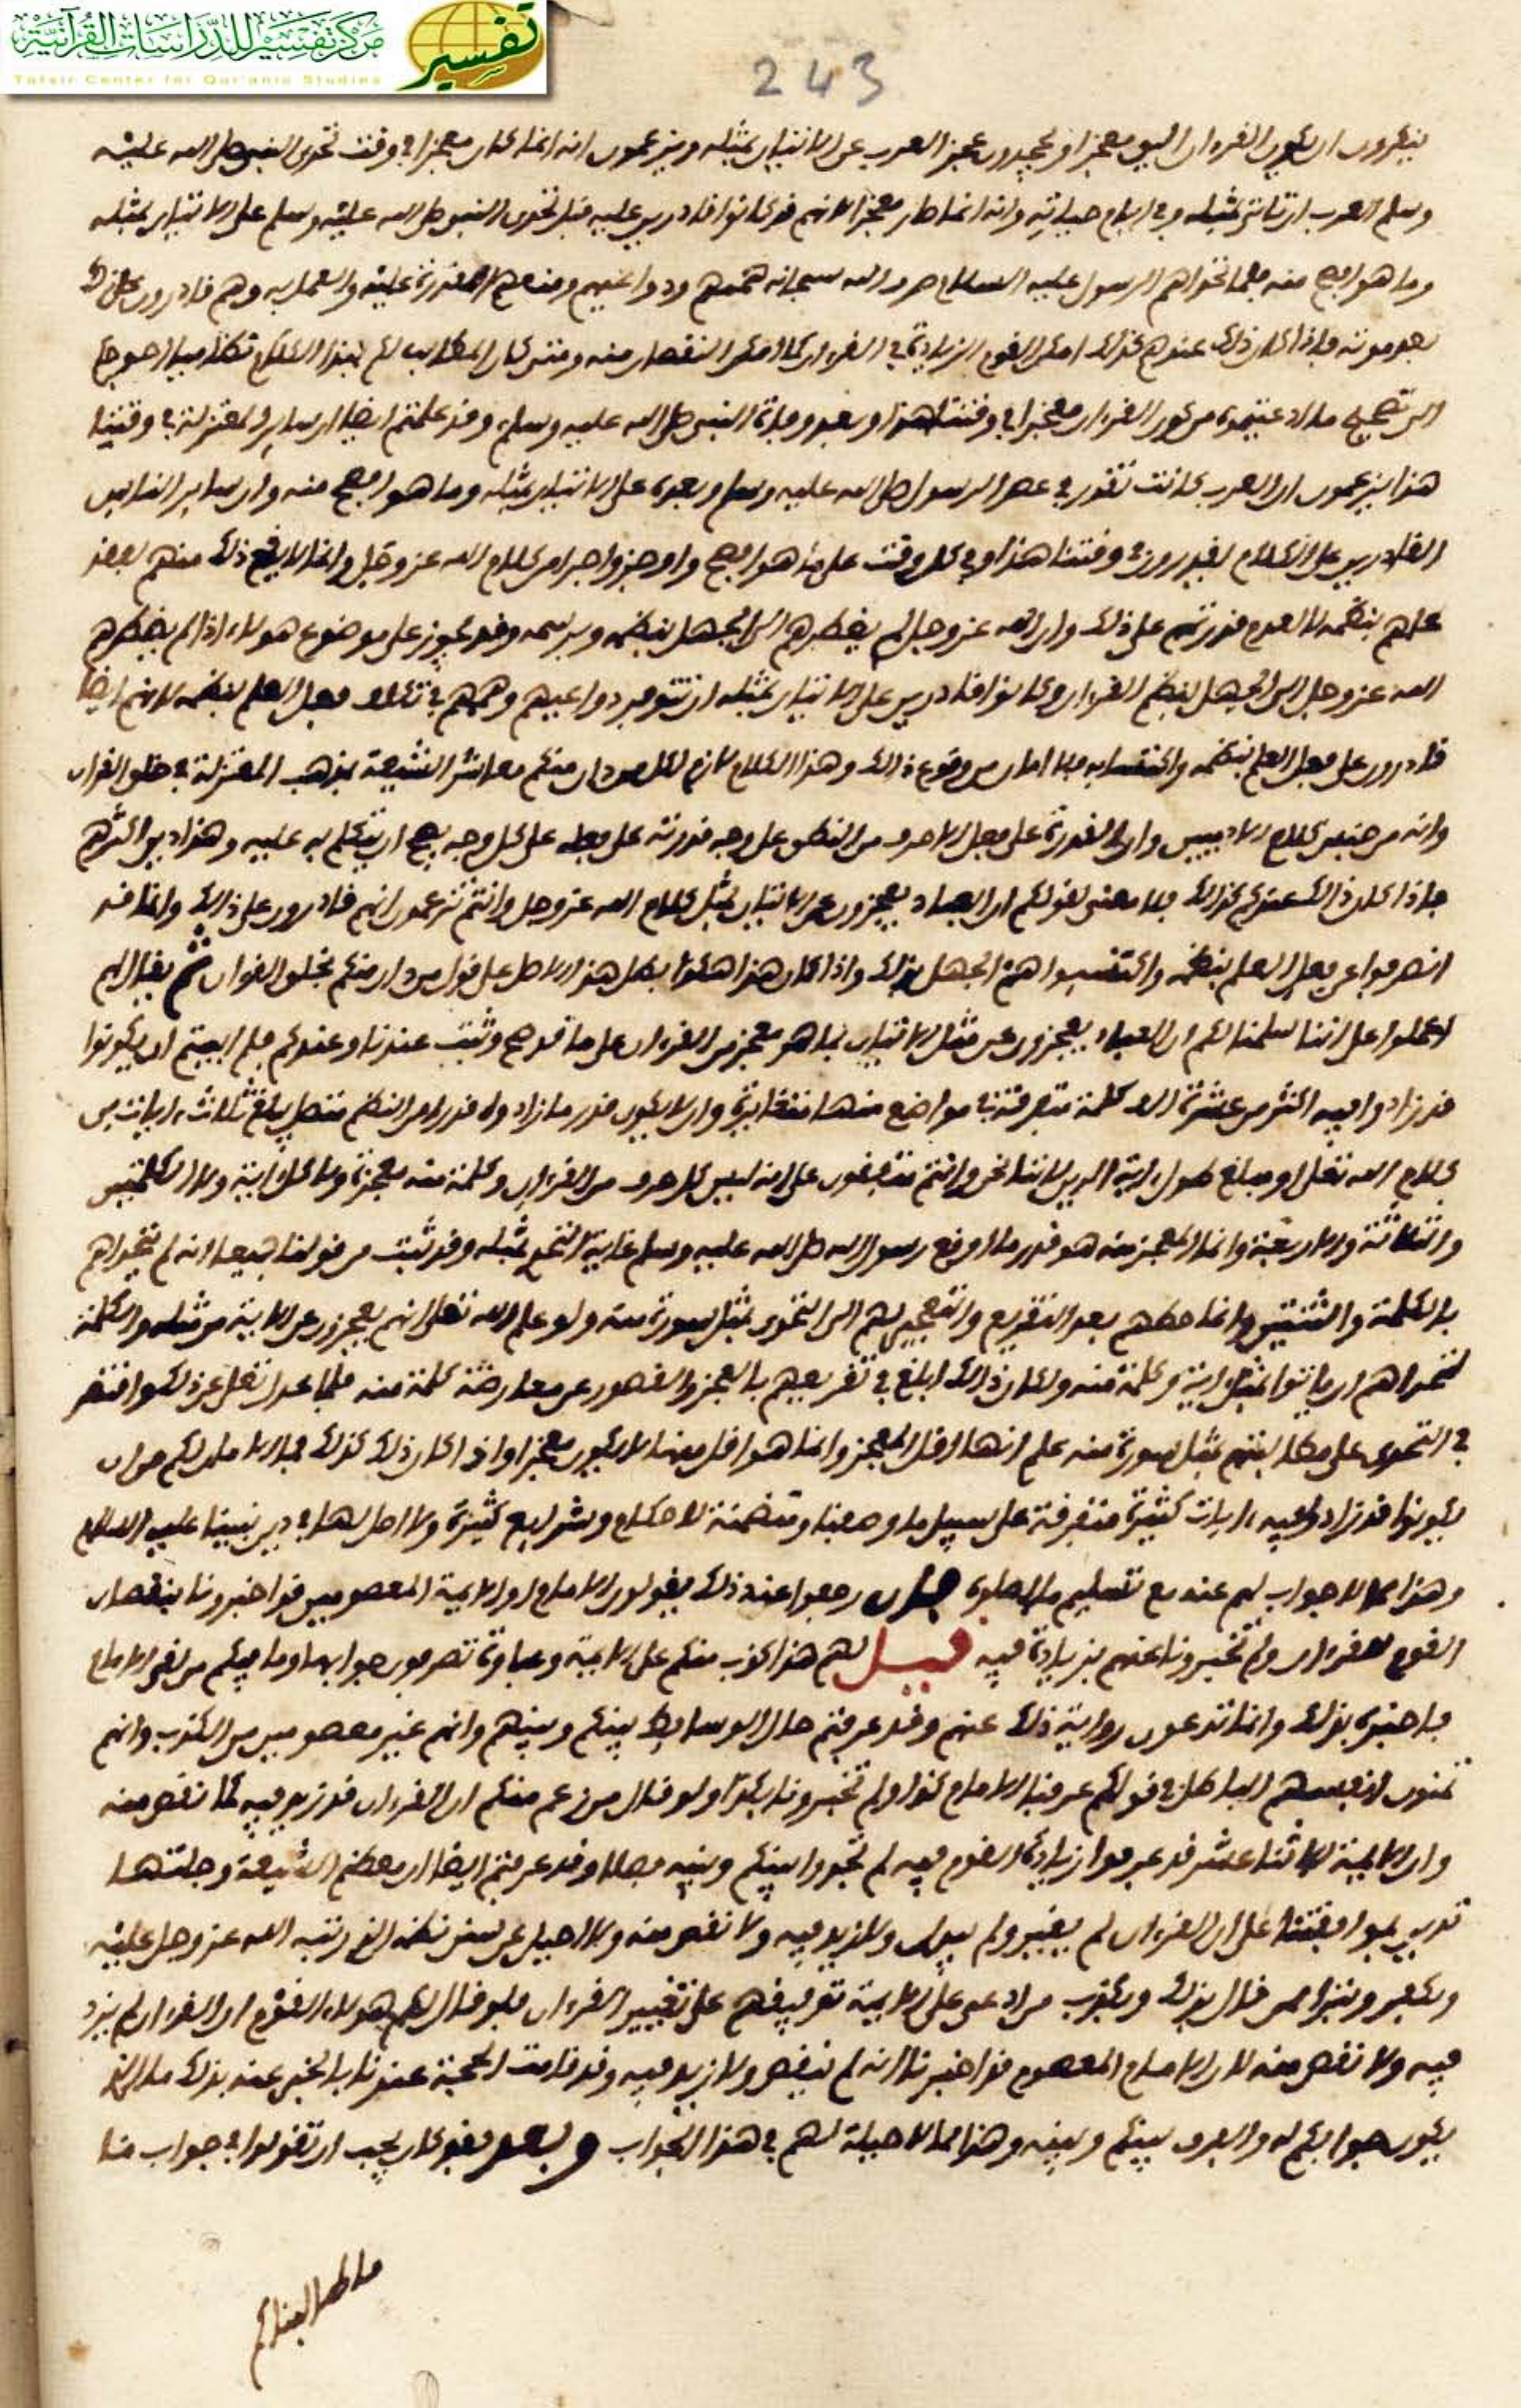 مركز تفسير للدراسات القرآنية
Tafsir Center for Qur'anic Studies
تفسير
243
ينكرون ان يكون القرءان اليوم معجزا ويجحدون عجز العرب عن الاتيان بمثله ويزعمون انه انما كان معجزا في وقت تحدى النبي صلى الله عليه
وسلم العرب ان تاتي بمثله وفي ايام حياته وانه انما صار معجزا لانهم قد كانوا قادرين عليه قبل تحدى النبي صلى الله عليه وسلم على الاتيان بمثله
وما هو افصح منه فلما تحداهم الرسول عليه السلام صرف الله سبحانه هممهم ودواعيهم ومنعهم القدرة عليه والعلم به وهم قادرون على ذلك
بعد موته فاذا كان ذلك عندهم كذلك امكن القوم الزيادة في القرءان كما امكن النقصان منه ومتى كان المطالب لكم بهذا الكلام متكلما احوجكم
الى تصحيح ما ادعيتموه من كون القرءان معجزا في وقتنا هذا وبعد وفاة النبي صلى الله عليه وسلم وقد علمتم ايضا ان ساير المعتزلة في وقتنا
هذا يزعمون ان العرب كانت تقدر في عصر الرسول صلى الله عليه وسلم وبعده على الاتيان بمثله وما هو افصح منه وان ساير الناس
القادرين على الكلام يقدرون في وقتنا هذا وفي كل وقت على ما هو افصح واوجز واجزل من كلام الله عز وجل وانما لا يقع ذلك منهم لفقد
علمهم بنظمه لا لعدم قدرتهم على ذلك وان الله عز وجل لم يضطرهم الى الجهل بنظمه وبرسمه وقد يجوز على موضوع هولاء اذا لم يضطرهم
الله عز وجل الى الجهل بنظم القرءان وكانوا قادرين على الاتيان بمثله ان تتوفر دواعيهم وهممهم في تكلف فعل العلم بنظمه لانهم ايضا
قادرون على فعل العلم بنظمه واكتسابه فلا امان من وقوع ذلك وهذا الكلام لازم لكل من دان منكم معاشر الشيعة بمذهب المعتزلة في خلق القران
وانه من جنس كلام الادميين وان القدرة على فعل الاحرف من النطق على وجه قدرته على فعله على كل وجه يصح ان يتكلم به عليه وهذا دين اكثرهم
فاذا كان ذلك عندكم كذلك فلا معنى لقولكم ان العباد يعجزون عن الاتيان بمثل كلام الله عز وجل وانتم تزعمون انهم قادرون على ذلك وانما قد
انصرفوا عن فعل العلم بنظمه واكتسبوا هم الجهل بذلك واذا كان هذا هكذا بطل هذا الاصل على قول من دان منكم بخلق القران ثم يقال لهم
اعملوا على اننا سلمنا لكم ان العباد يعجزون عن مثل الاتيان بما هو معجز من القرءان على ما قد صح وثبت عندنا وعندكم فلم ابيتم ان يكونوا
قد زادوا فيه اكثر من عشرة الاف كلمة متفرقة في مواضع منها متغايرة وان لا يكون قدر ما زادوه قدرا من النظم متصل يبلغ ثلاث ايات من
كلام الله تعلى او مبلغ طول اية الدين لاننا نحن وانتم متفقون على انه ليس كل حرف من القرءان وكلمة منه معجزة ولا كل اية ولا الكلمتين
والثلاثة والاربعة وانما المعجز منه هو قدر ما اوقع رسول الله صلى الله عليه وسلم غاية التحدى بمثله وقد ثبت من قولنا جميعا انه لم يتحداهم
بالكلمة والثنتين وانما حطهم بعد التقريع والتعجيز لهم الى التحدى بمثل سورة منه ولو علم الله تعلى انهم يعجزون عن الاية من مثله والكلمة
لتحداهم ان ياتوا بمثل اية وكلمة منه ولكان ذلك ابلغ في تقريعهم بالعجز والقصور عن معارضة كلمة منه فلما عدل تعلى عن ذلك واقتصر
في التحدى على مطالبتهم بمثل سورة منه علم انها اقل المعجز وانما هو اقل منها لا يكون معجزا واذا كان ذلك كذلك فما الامان لكم من ان
يكونوا قد زادوا فيه ايات كثيرة متفرقة على سبيل ما وصفنا ومتضمنة لاحكام وشرايع كثيرة ولا اصل لها في دين نبينا عليه السلام
وهذا مما لا جواب لهم عنه مع تسليم ما اصلوه فان رجعوا عند ذلك يقولون الامام او الايمة المعصومين قد اخبرونا بنقصان
القوم للقرءان ولم تخبرونا عنهم بزيادة فيه قيل لهم هذا كذب منكم على الايمة وعباوة تصرفون جوابها وما فيكم من لقى الامام
فاخبره بذلك وانما تدعون رواية ذلك عنهم وقد عرفتم حال الوسايط بينكم وبينهم وانهم غير معصومين من الكذب وانهم
تمنون انفسهم الباطل في قولكم عرفنا الامام كذا ولم تخبرونا بكذا ولو قال من زعم منكم ان القرءان قد زيد فيه كما نقص منه
وان الايمة الاثنا عشر قد عرفوا زيادة القوم فيه لم تجدوا بينكم وبينه فصلا وقد عرفتم ايضا ان معظم الشيعة وجلتها
تدين بموافقتنا على ان القرءان لم يغير ولم يبدل ولا زيد فيه ولا نقص منه ولا احيل عن سنن نظمه الذي رتبه الله عز وجل عليه
ويكفر ويتبرا ممن قال بذلك ويكذب من ادعى على الايمة توقيفهم على تغيير القرءان فلو قال لكم هولاء القوم ان القرءان لم يزد
فيه ولا نقص منه لان الامام المعصوم قد اخبرنا انه لم ينقص ولا زيد فيه وقد قامت الحجة عندنا بالخبر عنه بذلك ما الذي
يكون جوابكم له والفرق بينكم وبينه وهذا مما لا حيلة لهم في هذا الجواب وبعد فقد كان يجب ان تقولوا في جواب هذا